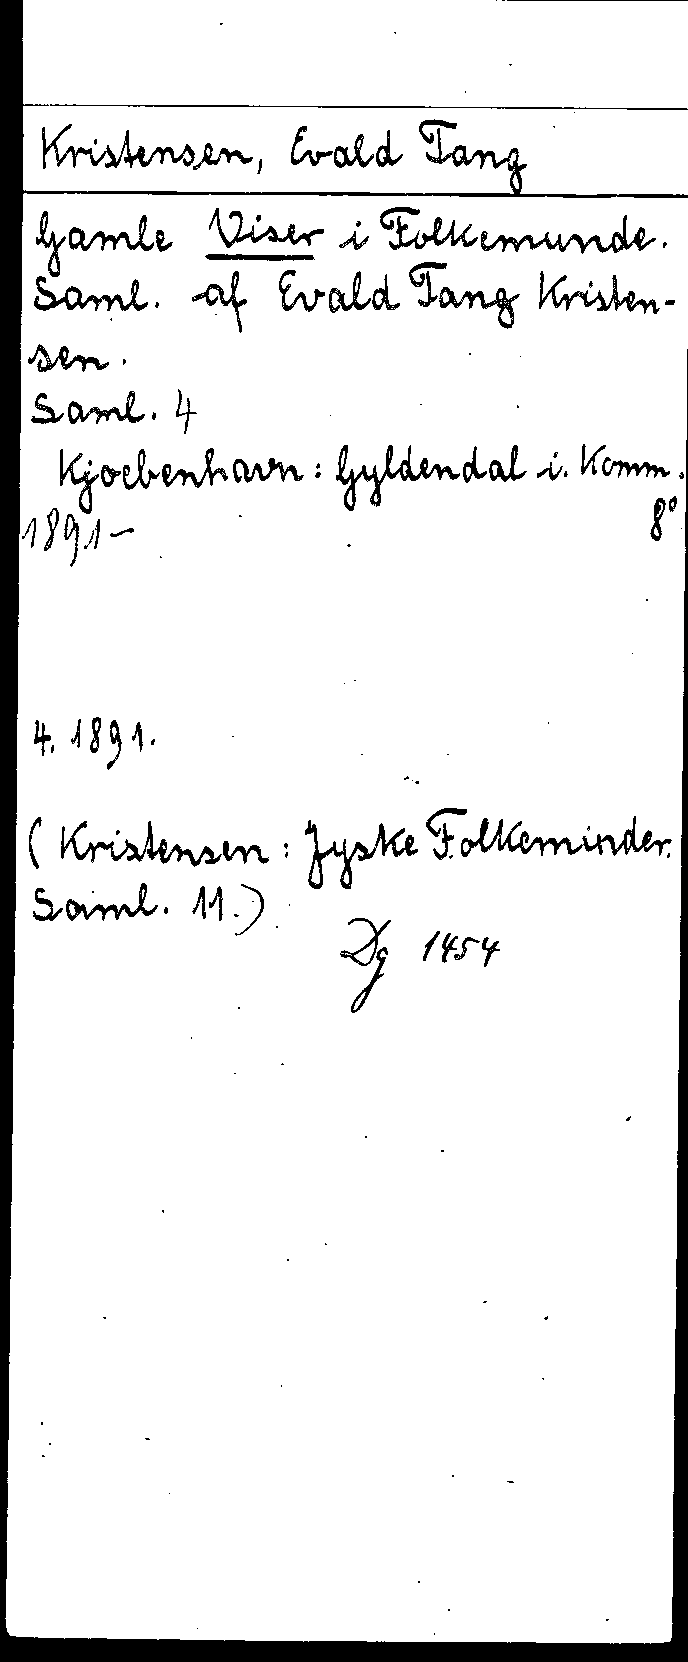 Kristensen, Evald Tang
Gamle Viser i Folkemunde.
Saml. af Evald Tang Kristen-
sen.
Saml. 4
Kjoebenhavn: Gyldendal i. Komm.
1891- 8°
4. 1891.
(Kristensen: Jyske Folkeminder.
Saml. 11.)
Dg 1454